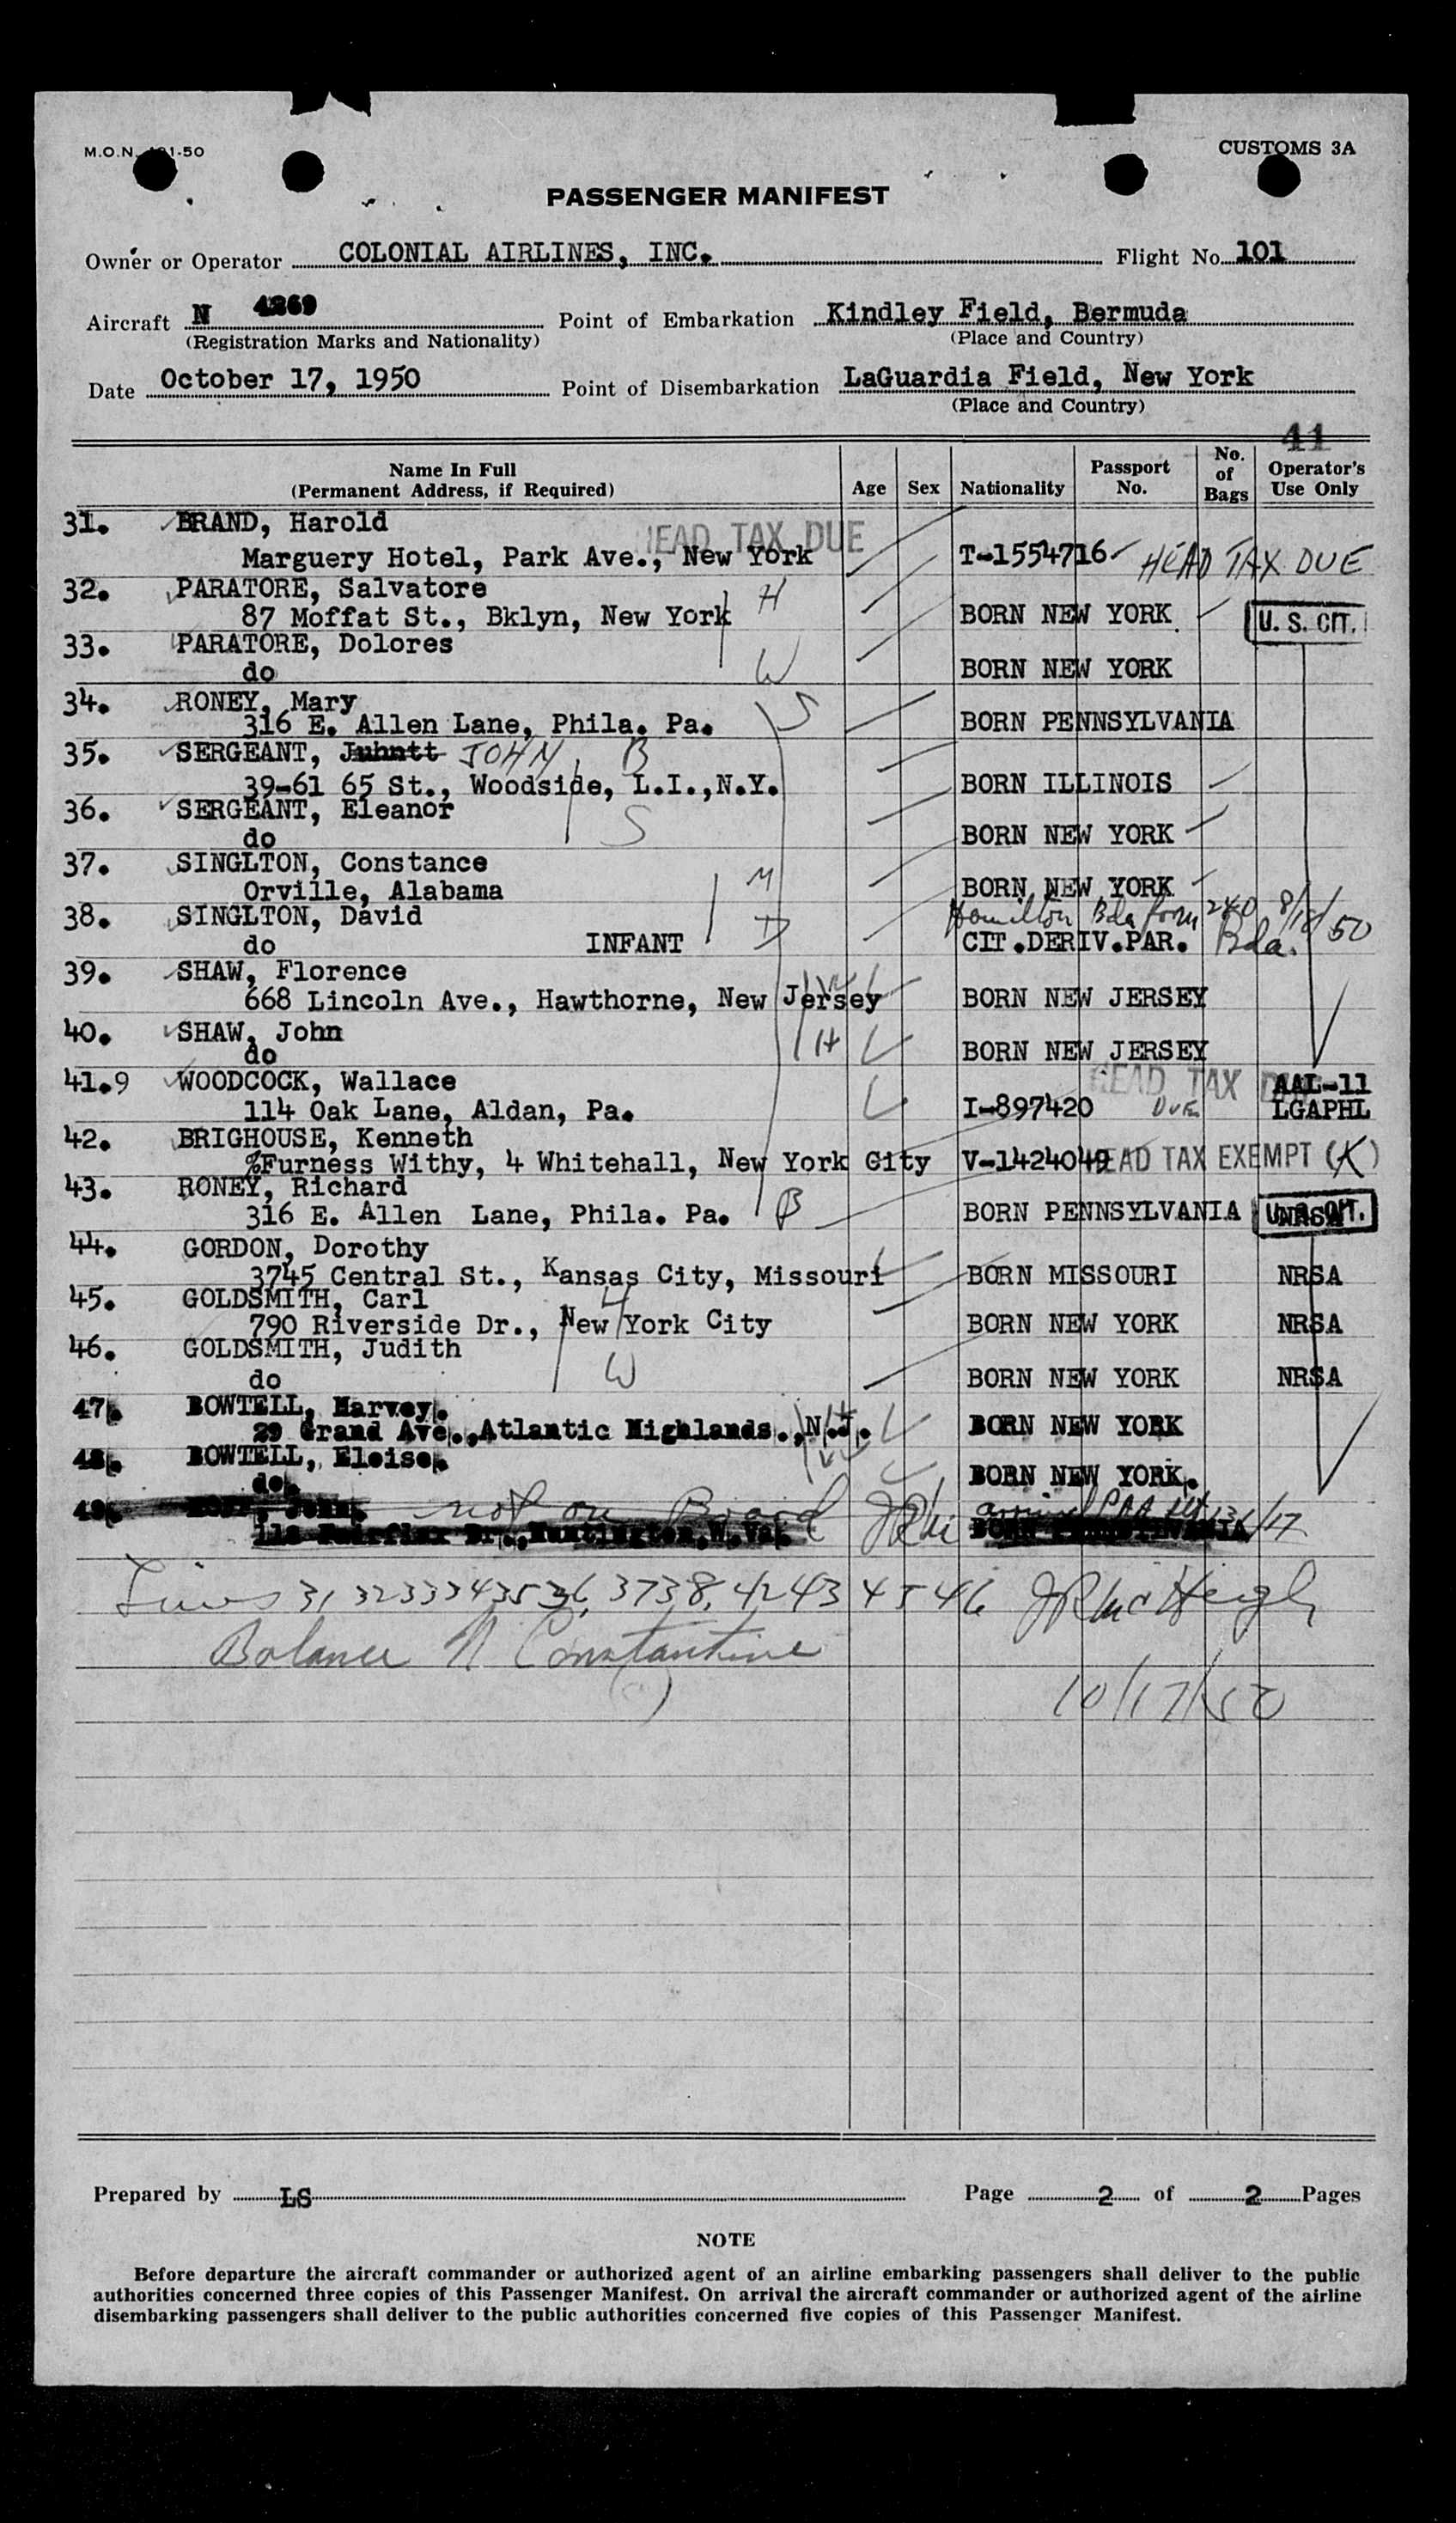 M.O.N. 1-50
CUSTOMS 3A
PASSENGER MANIFEST
Owner or Operator COLONIAL AIRLINES, INC. Flight No. 101
Aircraft N 4269 Point of Embarkation Kindley Field, Bermuda
(Registration Marks and Nationality) (Place and Country)
Date October 17, 1950 Point of Disembarkation LaGuardia Field, New York
(Place and Country)
41
Name In Full (Permanent Address, if Required) Age Sex Nationality Passport No. No. of Bags Operator's Use Only
31. BRAND, Harold HEAD TAX DUE
Marguery Hotel, Park Ave., New York T-1554716 HEAD TAX DUE
32. PARATORE, Salvatore H
87 Moffat St., Bklyn, New York BORN NEW YORK U. S. CIT.
33. PARATORE, Dolores W
do BORN NEW YORK
34. RONEY, Mary S
316 E. Allen Lane, Phila. Pa. BORN PENNSYLVANIA
35. SERGEANT, Juhntt JOHN B
39-61 65 St., Woodside, L.I.,N.Y. BORN ILLINOIS
36. SERGEANT, Eleanor S
do BORN NEW YORK
37. SINGLTON, Constance M
Orville, Alabama BORN NEW YORK
38. SINGLTON, David Hamilton Bda form 240 8/18/50
do INFANT CIT.DERIV.PAR. Bda.
39. SHAW, Florence W
668 Lincoln Ave., Hawthorne, New Jersey BORN NEW JERSEY
40. SHAW, John H
do BORN NEW JERSEY
41.9 WOODCOCK, Wallace HEAD TAX DUE AAL-11
114 Oak Lane, Aldan, Pa. I-897420 DUE LGAPHL
42. BRIGHOUSE, Kenneth
%Furness Withy, 4 Whitehall, New York City V-1424049 HEAD TAX EXEMPT (K)
43. RONEY, Richard
316 E. Allen Lane, Phila. Pa. B BORN PENNSYLVANIA U. S. CIT.
44. GORDON, Dorothy
3745 Central St., Kansas City, Missouri BORN MISSOURI NRSA
45. GOLDSMITH, Carl H
790 Riverside Dr., New York City BORN NEW YORK NRSA
46. GOLDSMITH, Judith W
do BORN NEW YORK NRSA
47. BOWTELL, Harvey. H
29 Grand Ave.,Atlantic Highlands.,N.J. BORN NEW YORK
48. BOWTELL, Eloise. W
do. BORN NEW YORK.
49. John. not on Board arrived PAA
112 Fairfax Dr.,Huntington,W.Va. BORN PENNSYLVANIA
Lines 31 32 33 34 35 36, 37 38, 42 43 45 46 JR McHeigh
Balance N Constantine
10/17/50
Prepared by LS Page 2 of 2 Pages
NOTE
Before departure the aircraft commander or authorized agent of an airline embarking passengers shall deliver to the public
authorities concerned three copies of this Passenger Manifest. On arrival the aircraft commander or authorized agent of the airline
disembarking passengers shall deliver to the public authorities concerned five copies of this Passenger Manifest.